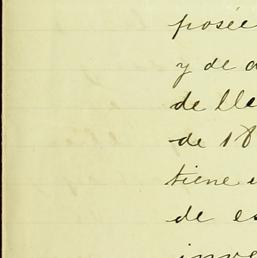 posée
y de
de lle
de 18
tiene
de es
inve